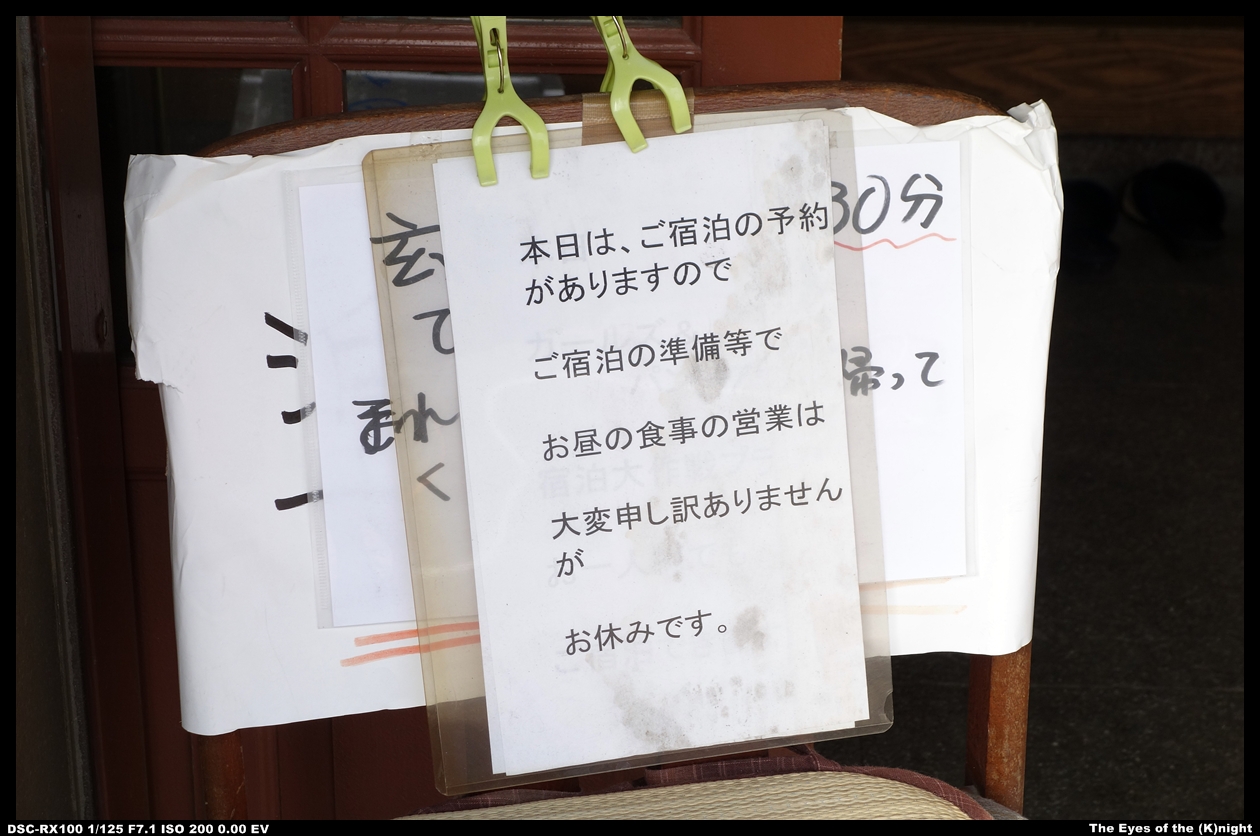 本日は、ご宿泊の予約
がありますので
ご宿泊の準備等で
お昼の食事の営業は
大変申し訳ありません
が
お休みです。
30分
て
帰って
く
DSC-RX100 1/125 F7.1 ISO 200 0.00 EV
The Eyes of the (K)night